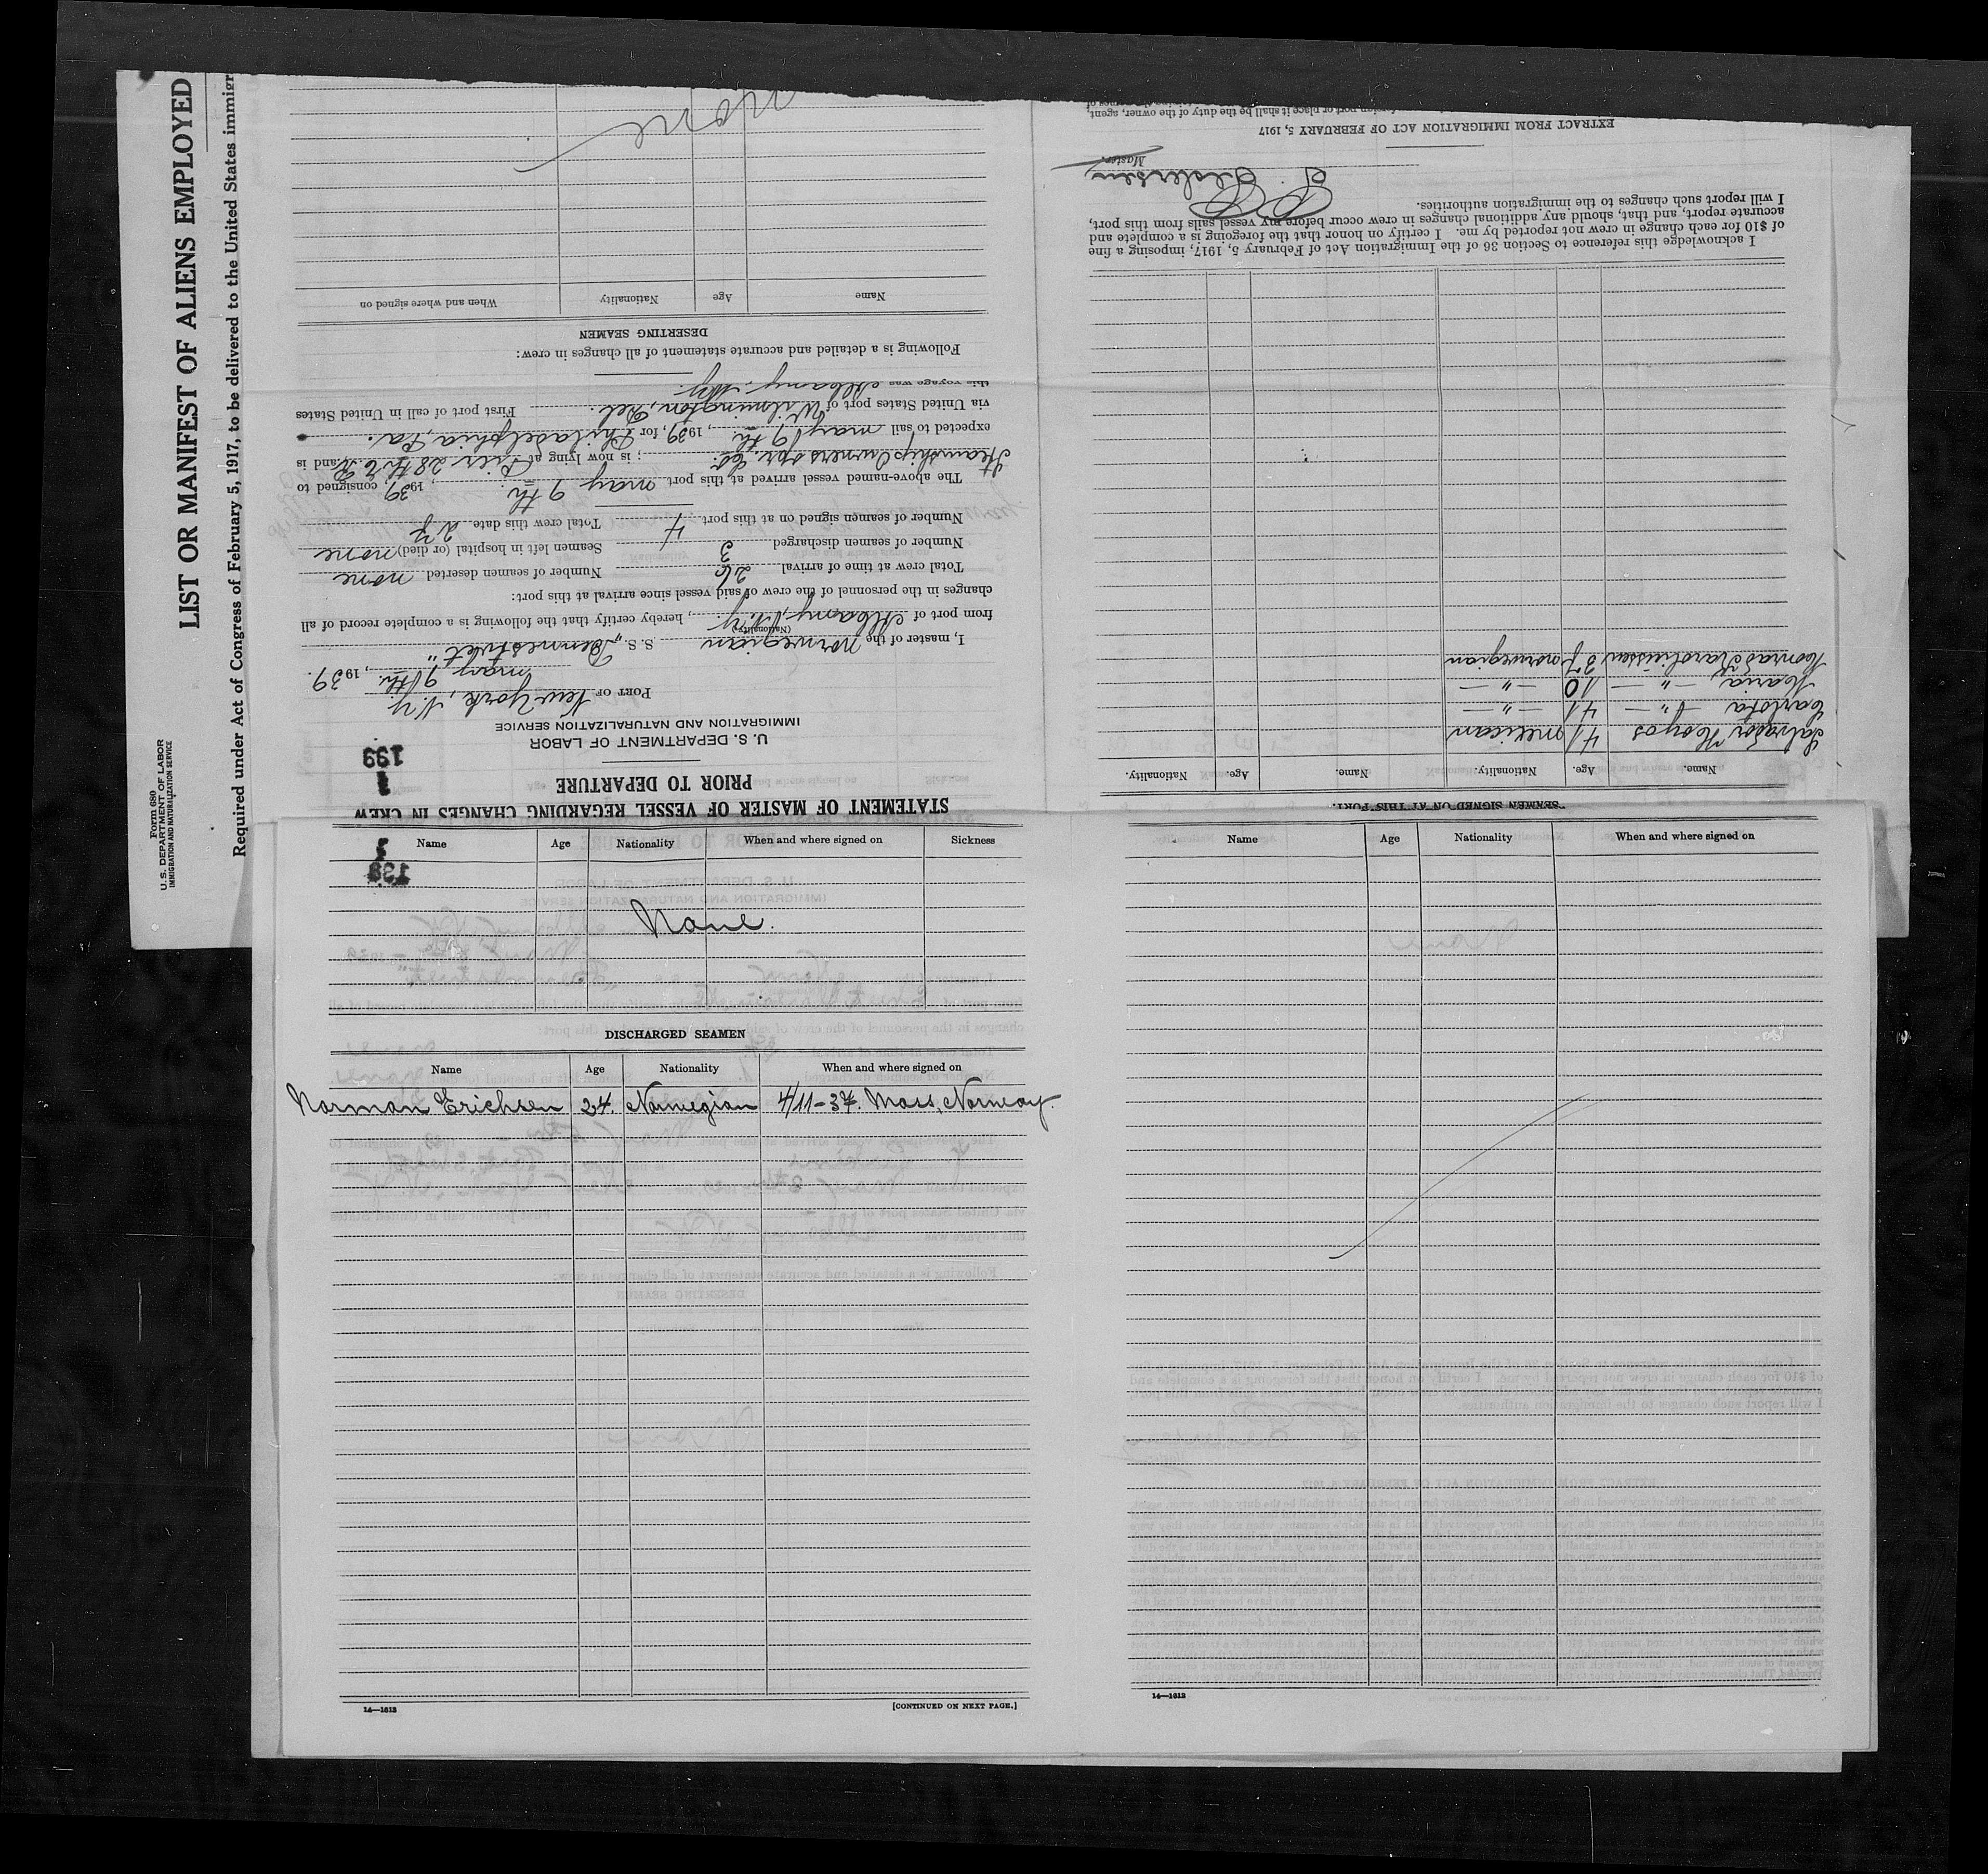 Form 680
U. S. DEPARTMENT OF LABOR
IMMIGRATION AND NATURALIZATION SERVICE
LIST OR MANIFEST OF ALIENS EMPLOYED
Required under Act of Congress of February 5, 1917, to be delivered to the United States immigr
STATEMENT OF MASTER OF VESSEL REGARDING CHANGES IN CREW
PRIOR TO DEPARTURE
199
U. S. DEPARTMENT OF LABOR
IMMIGRATION AND NATURALIZATION SERVICE
PORT OF New York, N.Y
may 9th, 1939.
I, master of the norwegian S. S.
(Nationality)
from port of Albany, N.Y, hereby certify that the following is a complete record of all
changes in the personnel of the crew of said vessel since arrival at this port:
Total crew at time of arrival 26 Number of seamen deserted none
Number of seamen discharged 3 Seamen left in hospital (or died) none
Number of seamen signed on at this port 4 Total crew this date 27
The above-named vessel arrived at this port may 9th, 1939, consigned to
; is now lying at Pier 28th and is
expected to sail may 9th, 1939, for Philadelphia, Pa.
via United States port of Wilmington, Del. First port of call in United States
this voyage was Albany, Ny.
Following is a detailed and accurate statement of all changes in crew:
DESERTING SEAMEN
Name Age Nationality When and where signed on
none
SEAMEN SIGNED ON AT THIS PORT.
Name. Age. Nationality. Name. Age. Nationality.
Salvador Hoyos 41 mexican
Carlota —"— 41 —"—
Maria, —"— 10 —"—
Konrad Karoliussen 37 norwegian
I acknowledge this reference to Section 36 of the Immigration Act of February 5, 1917, imposing a fine
of $10 for each change in crew not reported by me. I certify on honor that the foregoing is a complete and
accurate report, and that, should any additional changes in crew occur before my vessel sails from this port,
I will report such changes to the immigration authorities.
Pedersen
Master.
EXTRACT FROM IMMIGRATION ACT OF FEBRUARY 5, 1917
foreign port or place it shall be the duty of the owner, agent,
Name Age Nationality When and where signed on Sickness
198
None.
DISCHARGED SEAMEN
Name Age Nationality When and where signed on
Norman Erichsen 24. Norwegian 4/11-37. Moss, Norway.
14—1613
[CONTINUED ON NEXT PAGE.]
Name Age Nationality When and where signed on
14—1613